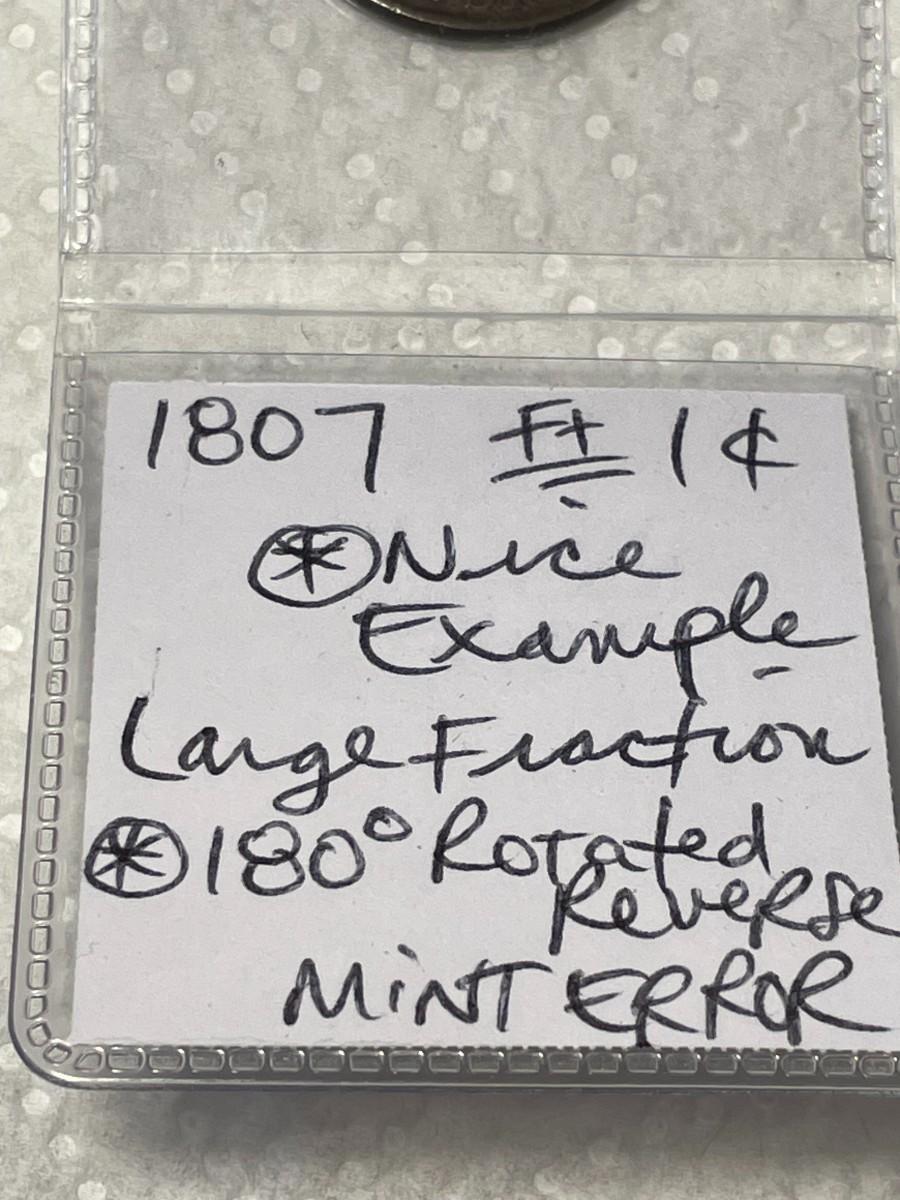 1807 F+ 1¢
⊛ Nice
Example
Large Fraction
⊛ 180° Rotated
Reverse
MiNT ERROR